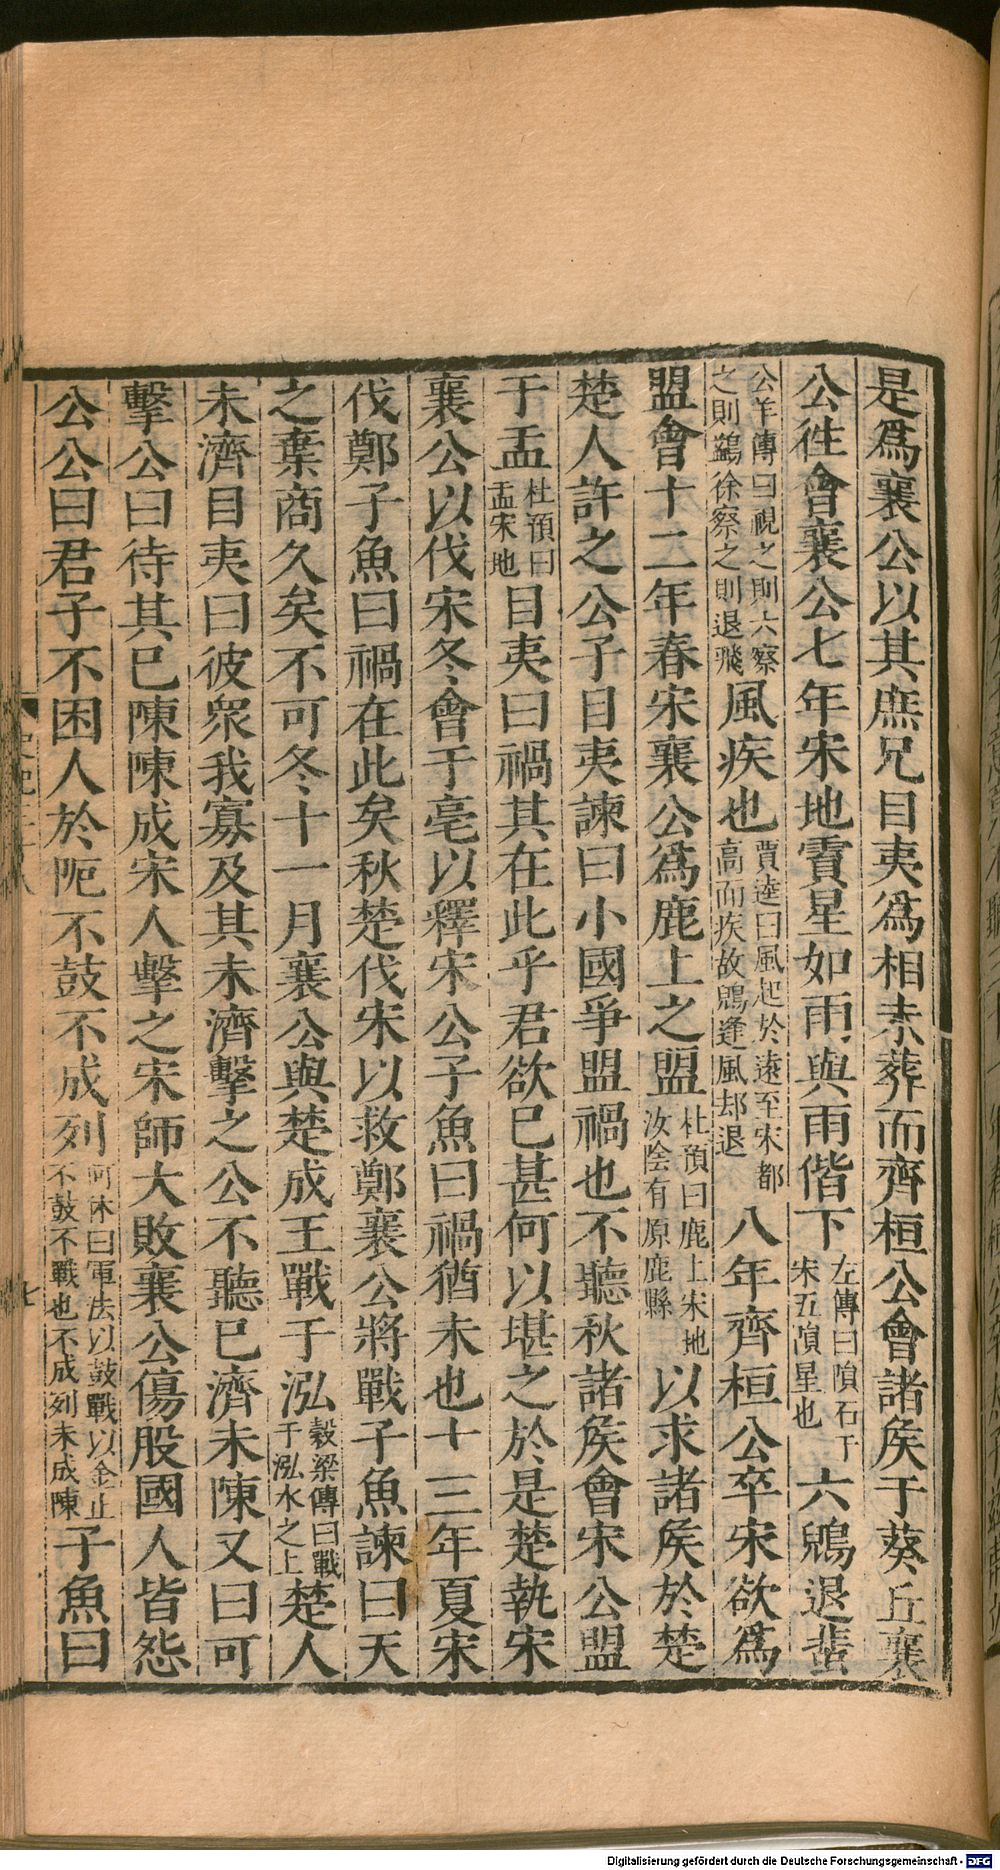 是爲襄公以其庶兄目夷爲相未葬而齊桓公會諸矦于葵丘襄
公徃會襄公七年宋地霣星如雨與雨偕下左傳曰隕石于宋五隕星也六鶂退蜚
公羊傳曰視之則六察之則鷁徐察之則退飛風疾也賈逵曰風起於遠至宋都高而疾故鶂逢風却退八年齊桓公卒宋欲爲
盟會十二年春宋襄公爲鹿上之盟杜預曰鹿上宋地汝陰有原鹿縣以求諸矦於楚
楚人許之公子目夷諫曰小國爭盟禍也不聽秋諸矦會宋公盟
于盂杜預曰盂宋地目夷曰禍其在此乎君欲已甚何以堪之於是楚執宋
襄公以伐宋冬會于亳以釋宋公子魚曰禍猶未也十三年夏宋
伐鄭子魚曰禍在此矣秋楚伐宋以救鄭襄公將戰子魚諫曰天
之棄商久矣不可冬十一月襄公與楚成王戰于泓穀梁傳曰戰于泓水之上楚人
未濟目夷曰彼衆我寡及其未濟擊之公不聽已濟未陳又曰可
擊公曰待其已陳陳成宋人擊之宋師大敗襄公傷股國人皆怨
公公曰君子不困人於阨不鼓不成列何休曰軍法以鼓戰以金止不鼓不戰也不成列未成陳子魚曰
七
Digitalisierung gefördert durch die Deutsche Forschungsgemeinschaft - DFG